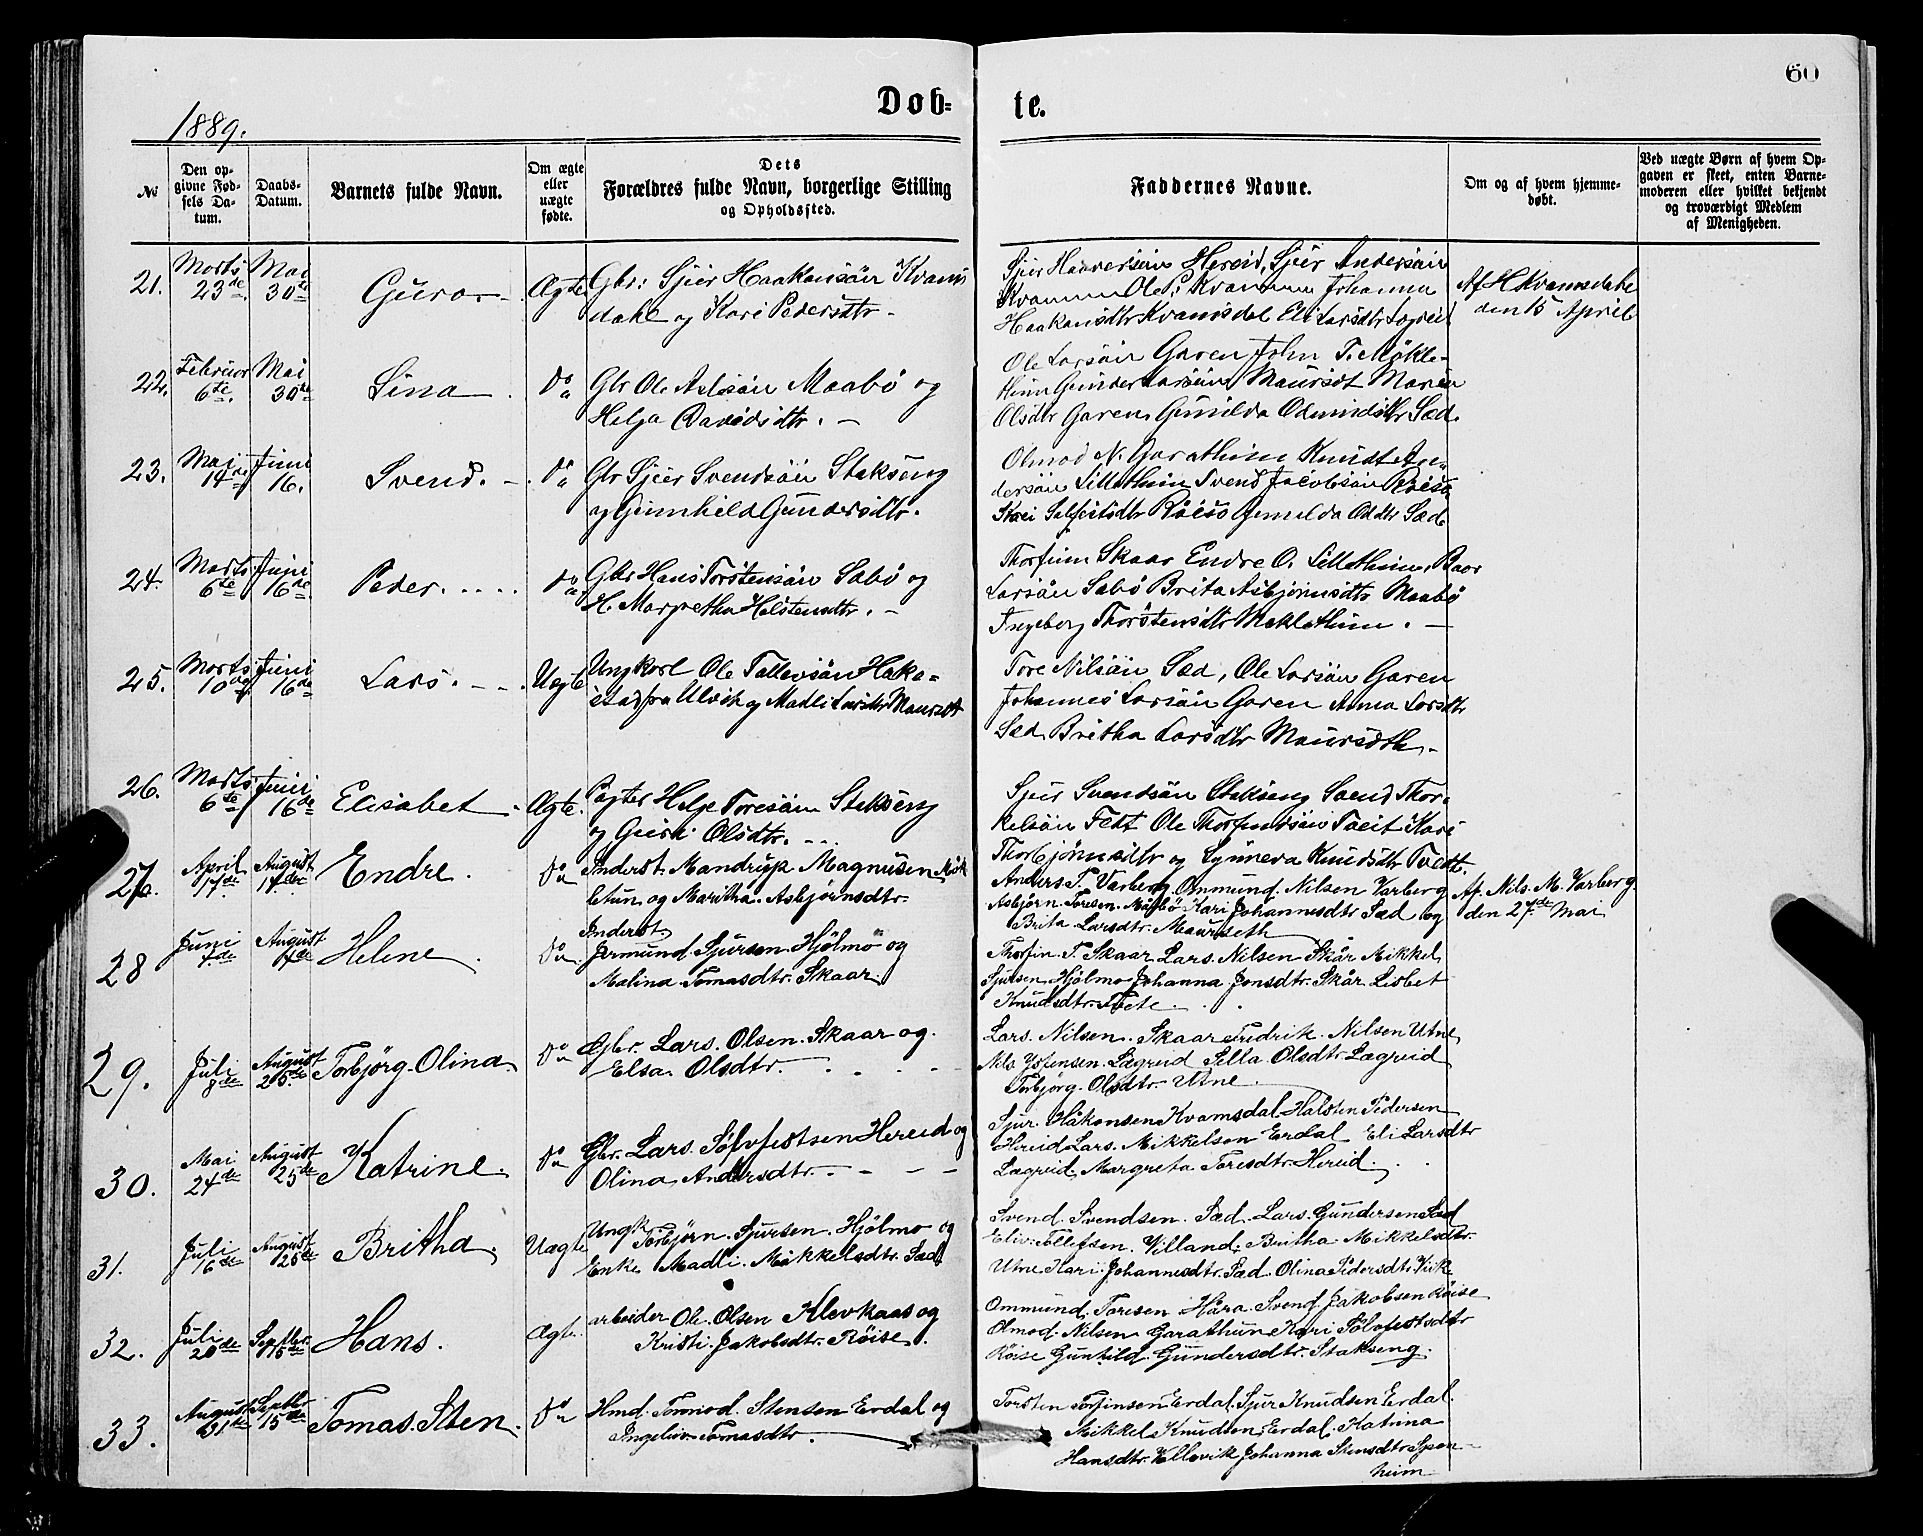 60
Døb-
te.
1889.
№
Den op-
givne Fød-
sels Da-
tum.
Daabs-
Datum.
Barnets fulde Navn.
Om ægte
eller
uægte
fødte.
Dets
Forældres fulde Navn, borgerlige Stilling
og Opholdssted.
Faddernes Navne.
Om og af hvem hjemme-
døbt.
Ved uægte Børn af hvem Op-
gaven er skeet, enten Barne-
moderen eller hvilket bekjendt
og troværdigt Medlem
af Menigheden.
21. Marts 23de Mai 30te Guro Ægte Gbr: Sjur Haakonsön Kvams
dahl og Kari Pedersdtr.
Sjur Haaversön Hereid, Sjur Andersön
Kvamm Ole P. Kvamm Johanna
Haakonsdtr Kvamsdal Eli Larsdtr Lægreid
Af H Kvamsdahl
den 15 April
22. Februar 6te Mai 30te Sina Do Gbr Ole Aslsön Maabö og
Helga Davidsdtr.
Ole Larsön Garen John T. Mökle-
thun Gunder Larsön Maursät Maria
Olsdtr Garen Gunilda Odmundsdtr Sæd.
23. Mai 14de Juni 16. Svend. Do Gbr Sjur Svendsön Stakseng
og Gunhild Gundersdtr.
Olmod N. Garathun Knudt An-
dersön Lillethun Svend Jacobsön Röise
Kari Sølfestsdtr Röise Gunilda Oddtr Sæd
24. Marts 6te Juni 16de Peder. Do Gbr Hans Torstensön Sabö og
H. Margretha Helstensdtr.
Thorfinn Skaar Endre O. Lillethun, Baar
Larsön Sabö Brita Asbjörnsdtr Maabö
Ingeborg Thorstensdtr Möklethun.
25. Marts 10de Juni 16de Lars. Uægte Ungkarl Ole Tollevsön Haka-
stad fra Ulvik og Madli Larsdtr Maursät
Tore Nilsön Sæd, Ole Larsön Garen
Johannes Larsön Garen Anna Larsdtr
Sæd Britha Larsdtr Maursäth.
26. Marts 6te Juni 16de Elisabet Ægte. Pagter Helge Toresön Stakseng
og Guri Olsdtr.
Sjur Svendsön Stakseng Svend Thor-
kelsön Tedt Ole Thorfindsön Tveit Kari
Thorbjörnsdtr og Synneva Knudsdtr Tvedt.
27. April 17de August 14de Endre. Do Inderst Mandrup Magnusen Mök
letun og Maritha Asbjørnsdtr.
Anders T. Varberg Ommund Nilsen Varberg
Asbjörn Toresen Måbö Kari Johannesdtr Sæd og
Brita Larsdtr. Maurseth
Af. Nils. M. Varberg
den 27de Mai
28 Juni 4de August 4de Helene Do Inderst.
Jermund Sjursen Hjölmö og
Malina Tomasdtr. Skaar.
Thorfin T. Skaar Lars. Nilsen Skår Mikkel
Sjursen Hjölmo Johanna Jonsdtr. Skår Lisbet
Knudsdtr. Tvete
29. Juli 8de August 25de Torbjörg Olina Do Gbr. Lars. Olsen. Skaar og
Elsa Olsdtr.
Lars. Nilsen. Skaar Fredrik Nilsen Utne
Nils Lægreid Sella Olsdtr. Lægreid
Torbjörg. Olsdtr. Utne
30. Mai 24de August 25de Katrine. Do Gbr. Lars. Sølvfestsen Hereid og
Olina Andersdtr.
Sjur. Håkonsen Kvamsdal Halsten Pedersen
Hereid Lars. Mikkelsen Erdal Eli Larsdtr
Lægreid. Margreta Toresdtr. Hereid.
31. Juli 6de August 25de Britha. Uægte Ungk. Torbjörn Sjursen Hjölmo og
Enke Madli. Mikkelsdtr. Sæd
Svend. Svendsen. Sæd. Lars. Gundersen Sæd
Eliv. Tollefsen. Villand. Britha Mikkelsdtr.
Utne Kari Johannesdtr. Sæd. Olina Pedersdtr. Vik
32. Juli 20de Septbr. 15de Hans. Ægte. arbeider Ole. Olsen Klevkaas og
Kristi. Jakobsdtr. Röise.
Ommund. Toresen Håra Svend Jakobsen Röise
Olmod. Nilsen Garathun Kari Sølvfestsdtr
Röise Gunhild Gundersdtr. Stakseng.
33. August 31te Septbr 15de Tomas. Sten. Do Hmd. Tormod. Stensen Erdal og
Ingeliv. Tomasdtr.
Torsten Torfinsen Erdal. Sjur Knudsen Erdal.
Mikkel Knudsen Erdal. Katrina
Hansdtr. Vallavik Johanna Stensdtr Spon-
heim